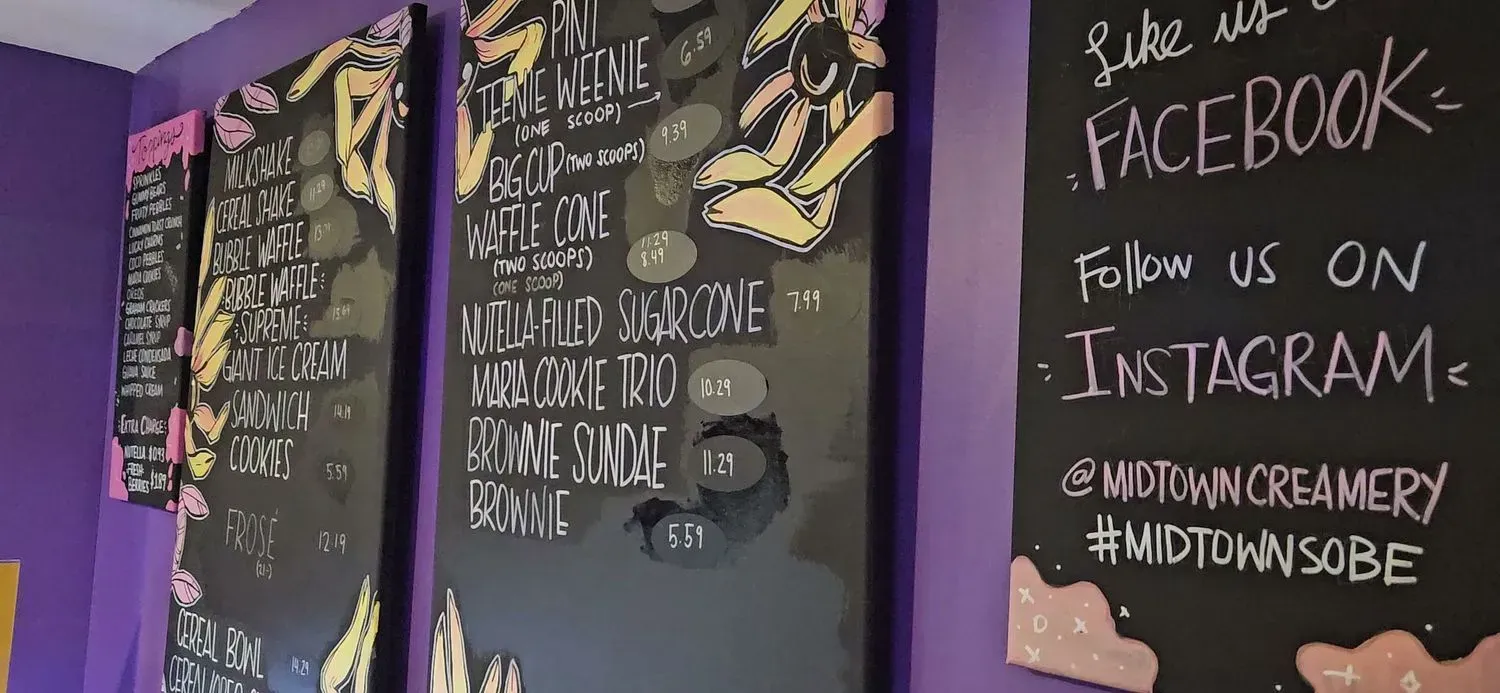 Toppings
SPRINKLES
GUMMY BEARS
FRUITY PEBBLES
CINNAMON TOAST CRUNCH
LUCKY CHARMS
COCO PEBBLES
MARIA COOKIES
OREOS
GRAHAM CRACKERS
CHOCOLATE SYRUP
CARAMEL SYRUP
LECHE CONDENSADA
GUAVA SAUCE
WHIPPED CREAM
EXTRA CHARGE:
NUTELLA $0.93
FRESH
BERRIES $1.89
MILKSHAKE
CEREAL SHAKE 11.29
BUBBLE WAFFLE
BUBBLE WAFFLE
SUPREME
GIANT ICE CREAM
SANDWICH 14.19
COOKIES 5.59
FROSÉ 12.19
(21+)
CEREAL BOWL 14.29
PINT
6.59
TEENIE WEENIE
(ONE SCOOP)
9.39
BIG CUP (TWO SCOOPS)
WAFFLE CONE
(TWO SCOOPS) 11.29
(ONE SCOOP) 8.49
NUTELLA-FILLED SUGARCONE 7.99
MARIA COOKIE TRIO 10.29
BROWNIE SUNDAE 11.29
BROWNIE 5.59
Like us
FACEBOOK
Follow US ON
INSTAGRAM
@MIDTOWNCREAMERY
#MIDTOWNSOBE